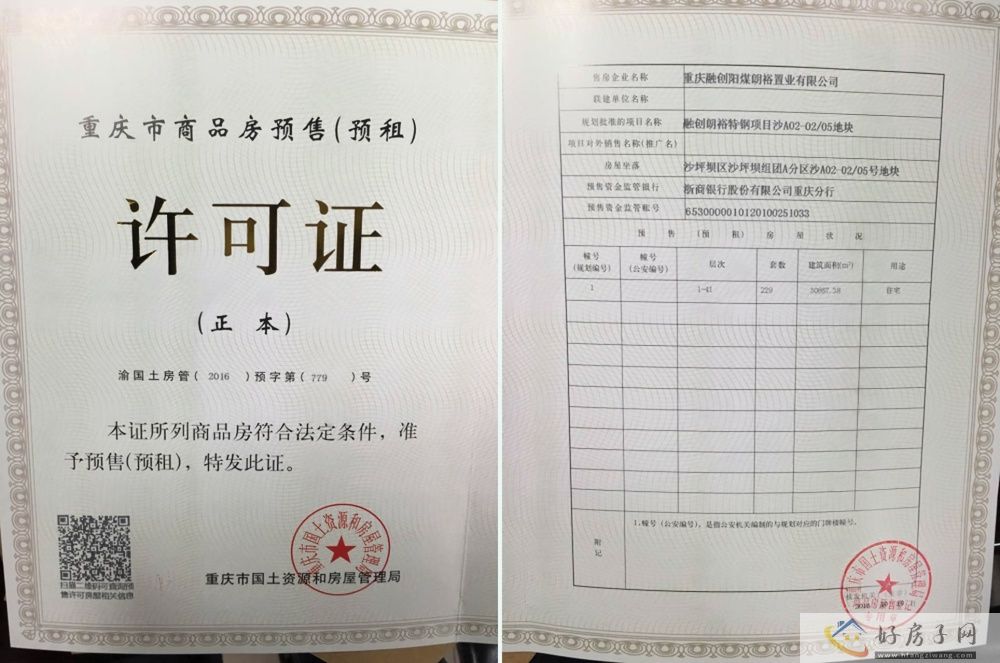 重庆市商品房预售(预租)
许可证
(正 本)
渝国土房管( 2016 )预字第( 779 )号
本证所列商品房符合法定条件，准
予预售(预租)，特发此证。
扫描二维码可查询预
售许可房屋相关信息
重庆市国土资源和房屋管理局
重庆市国土资源和房屋管理局
售房企业名称 重庆融创阳煤朗裕置业有限公司
联建单位名称
规划批准的项目名称 融创朗裕特钢项目沙A02-02/05地块
项目对外销售名称(推广名)
房屋坐落 沙坪坝区沙坪坝组团A分区沙A02-02/05号地块
预售资金监管银行 浙商银行股份有限公司重庆分行
预售资金监管账号 6530000010120100251033
预 售 (预 租) 房 屋 状 况
幢号(规划编号) 幢号(公安编号) 层次 套数 建筑面积(m²) 用途
1 1-41 229 30667.58 住宅
附记 1.幢号（公安编号），是指公安机关编制的与规划对应的门牌楼幢号。
重庆市国土资源和房屋管理局
核发机关
2016
好房子网
www.hfangziwang.com